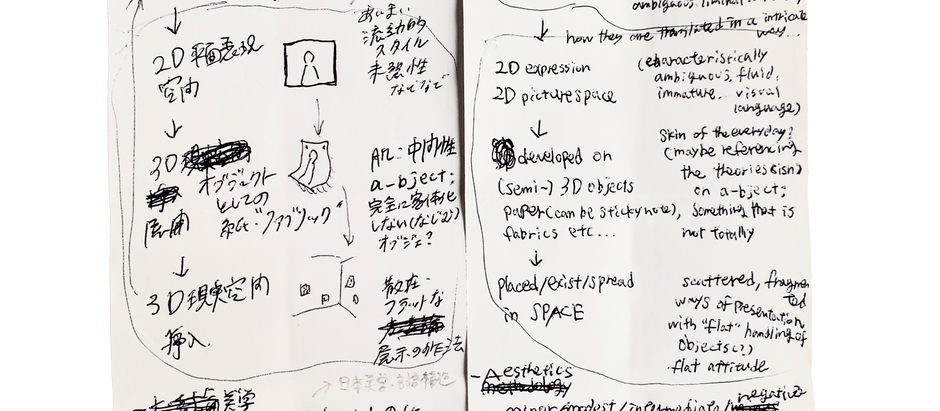 2D 平面表現
空間
あいまい
流動的
スタイル
未熟性
などなど
3D
オブジェクト
としての
紙・ファブリック
展開
AR: 中間性
a-bject:
完全に客体化
しない(なじむ)
オブジェ?
3D 現実空間
挿入
散在・
フラットな
展示の作法
→ 日本美学・言語構造
美学
ambiguous, liminal
how they are translated in a intricate
way...
2D expression
2D picture space
(characteristically
ambiguous, fluid,
immature.. visual
language)
developed on
(semi-) 3D objects
paper (can be sticky note),
fabrics etc...
skin of the everyday?
(maybe referencing
the theories (ism)
on a-bject;
something that is
not totally
placed/exist/spread
in SPACE
scattered, fragmented
ways of presentation
with "flat" handling of
objects(?)
flat attitude
- Aesthetics
methodology
negative